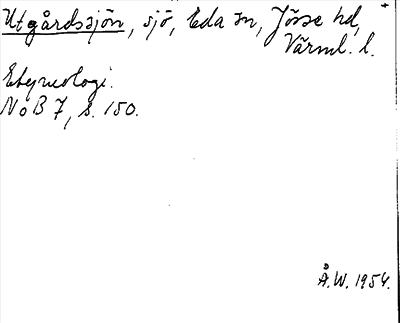 Utgårdssjön, sjö, Eda sn, Jösse hd,
Värml. l.
Etymologi.
NoB 7, s. 150.
Å.W. 1954.